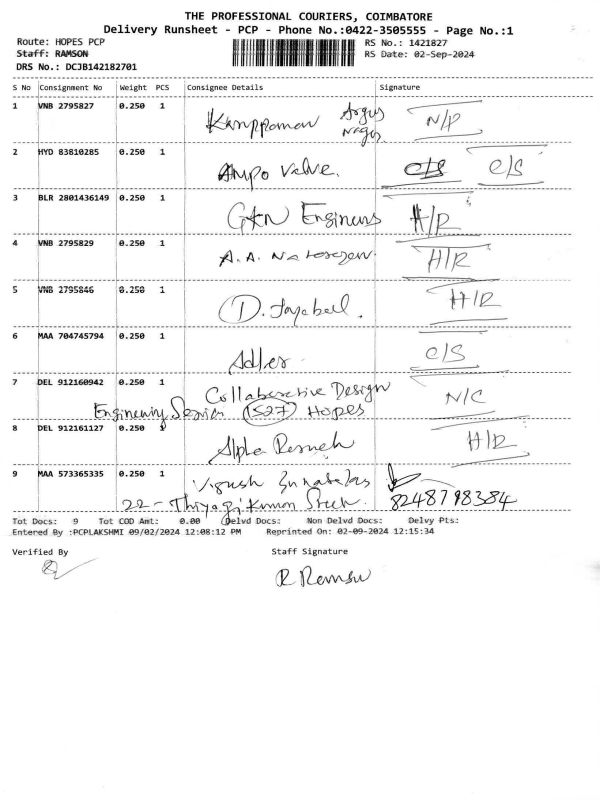 THE PROFESSIONAL COURIERS, COIMBATORE
Delivery Runsheet - PCP - Phone No.:0422-3505555 - Page No.:1
Route: HOPES PCP RS No.: 1421827
Staff: RAMSON RS Date: 02-Sep-2024
DRS No.: DCJB142182701
S No Consignment No Weight PCS Consignee Details Signature
1 VNB 2795827 0.250 1 N/P
2 HYD 83810285 0.250 1 Ampo Valve. c/s c/s
3 BLR 2801436149 0.250 1 GKN Engineers H/R
4 VNB 2795829 0.250 1 A.A. H/R
5 VNB 2795846 0.250 1 D. H/R
6 MAA 704745794 0.250 1 Adler c/s
7 DEL 912160942 0.250 1 Collaborative Design N/C
Engineering (527) Hopes
8 DEL 912161127 0.250 1 Alpha H/R
9 MAA 573365335 0.250 1
22- Thiyagi Kumaran Street. 8248798384
Tot Docs: 9 Tot COD Amt: 0.00 Delvd Docs: Non Delvd Docs: Delvy Pts:
Entered By :PCPLAKSHMI 09/02/2024 12:08:12 PM Reprinted On: 02-09-2024 12:15:34
Verified By Staff Signature